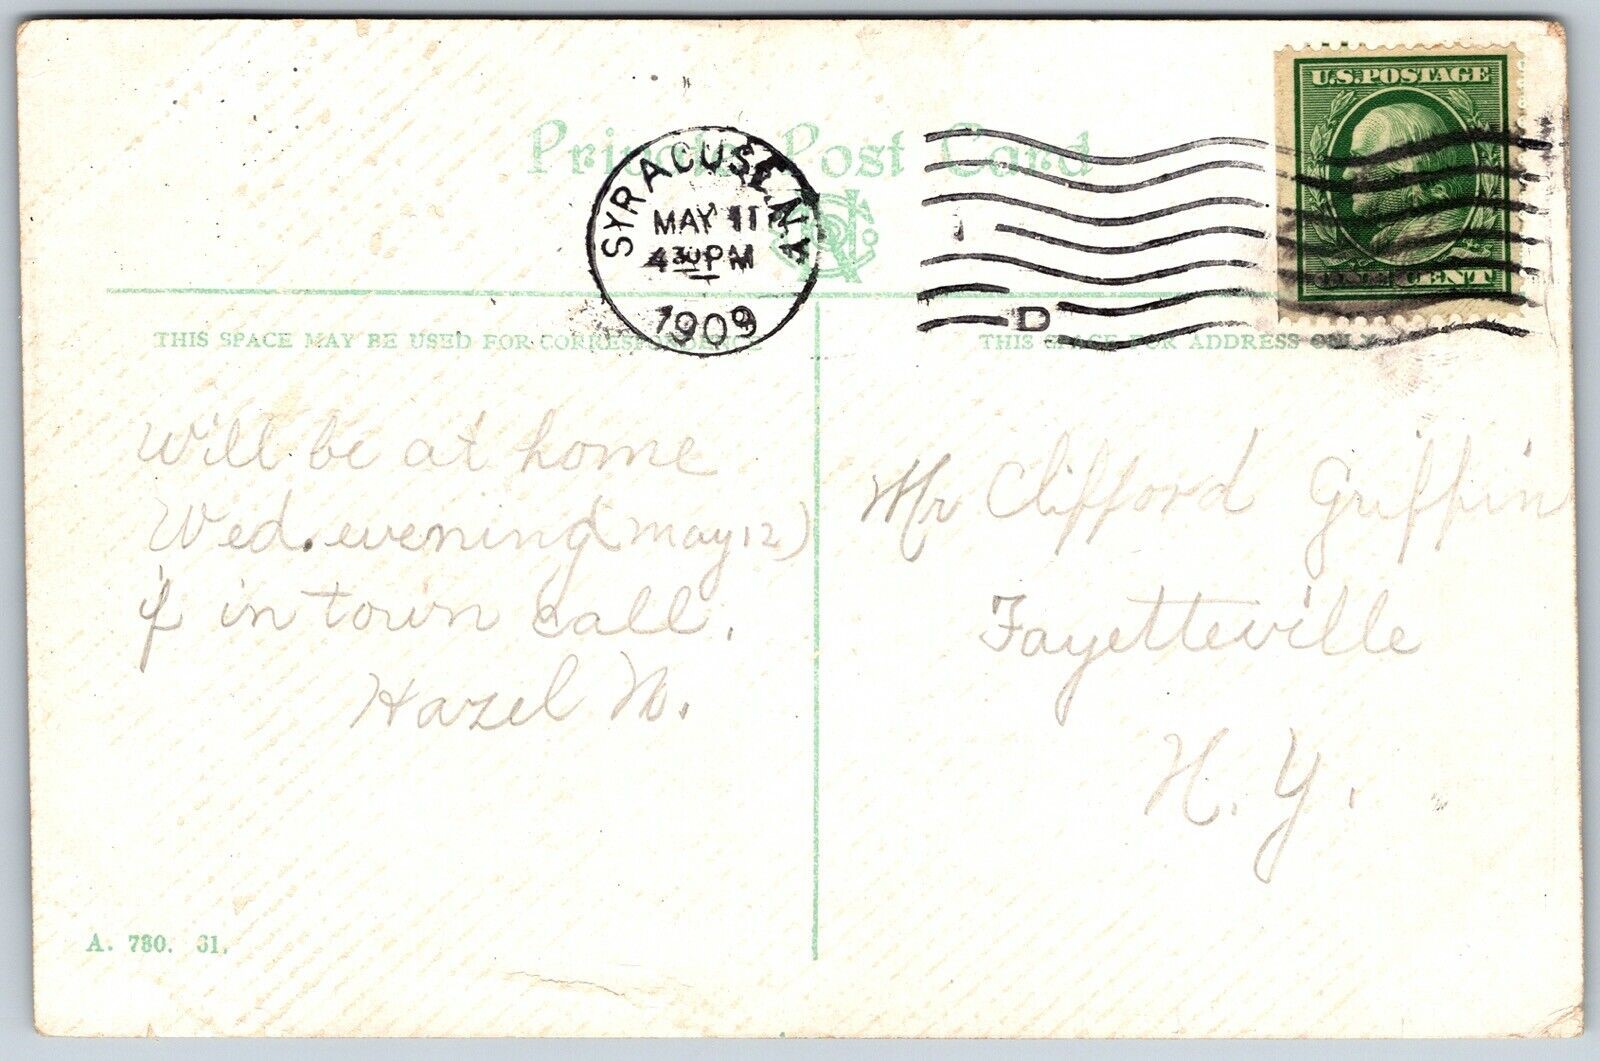 Private Post Card
SYRACUSE, N.Y.
MAY 11
4 30 PM
1909
D
U.S. POSTAGE
ONE CENT
THIS SPACE MAY BE USED FOR CORRESPONDENCE
THIS SPACE FOR ADDRESS ONLY
Will be at home
Wed. evening (May 12)
if in town call.
Hazel M.
Mr Clifford Griffin
Fayetteville
N. Y.
A. 730. 61.